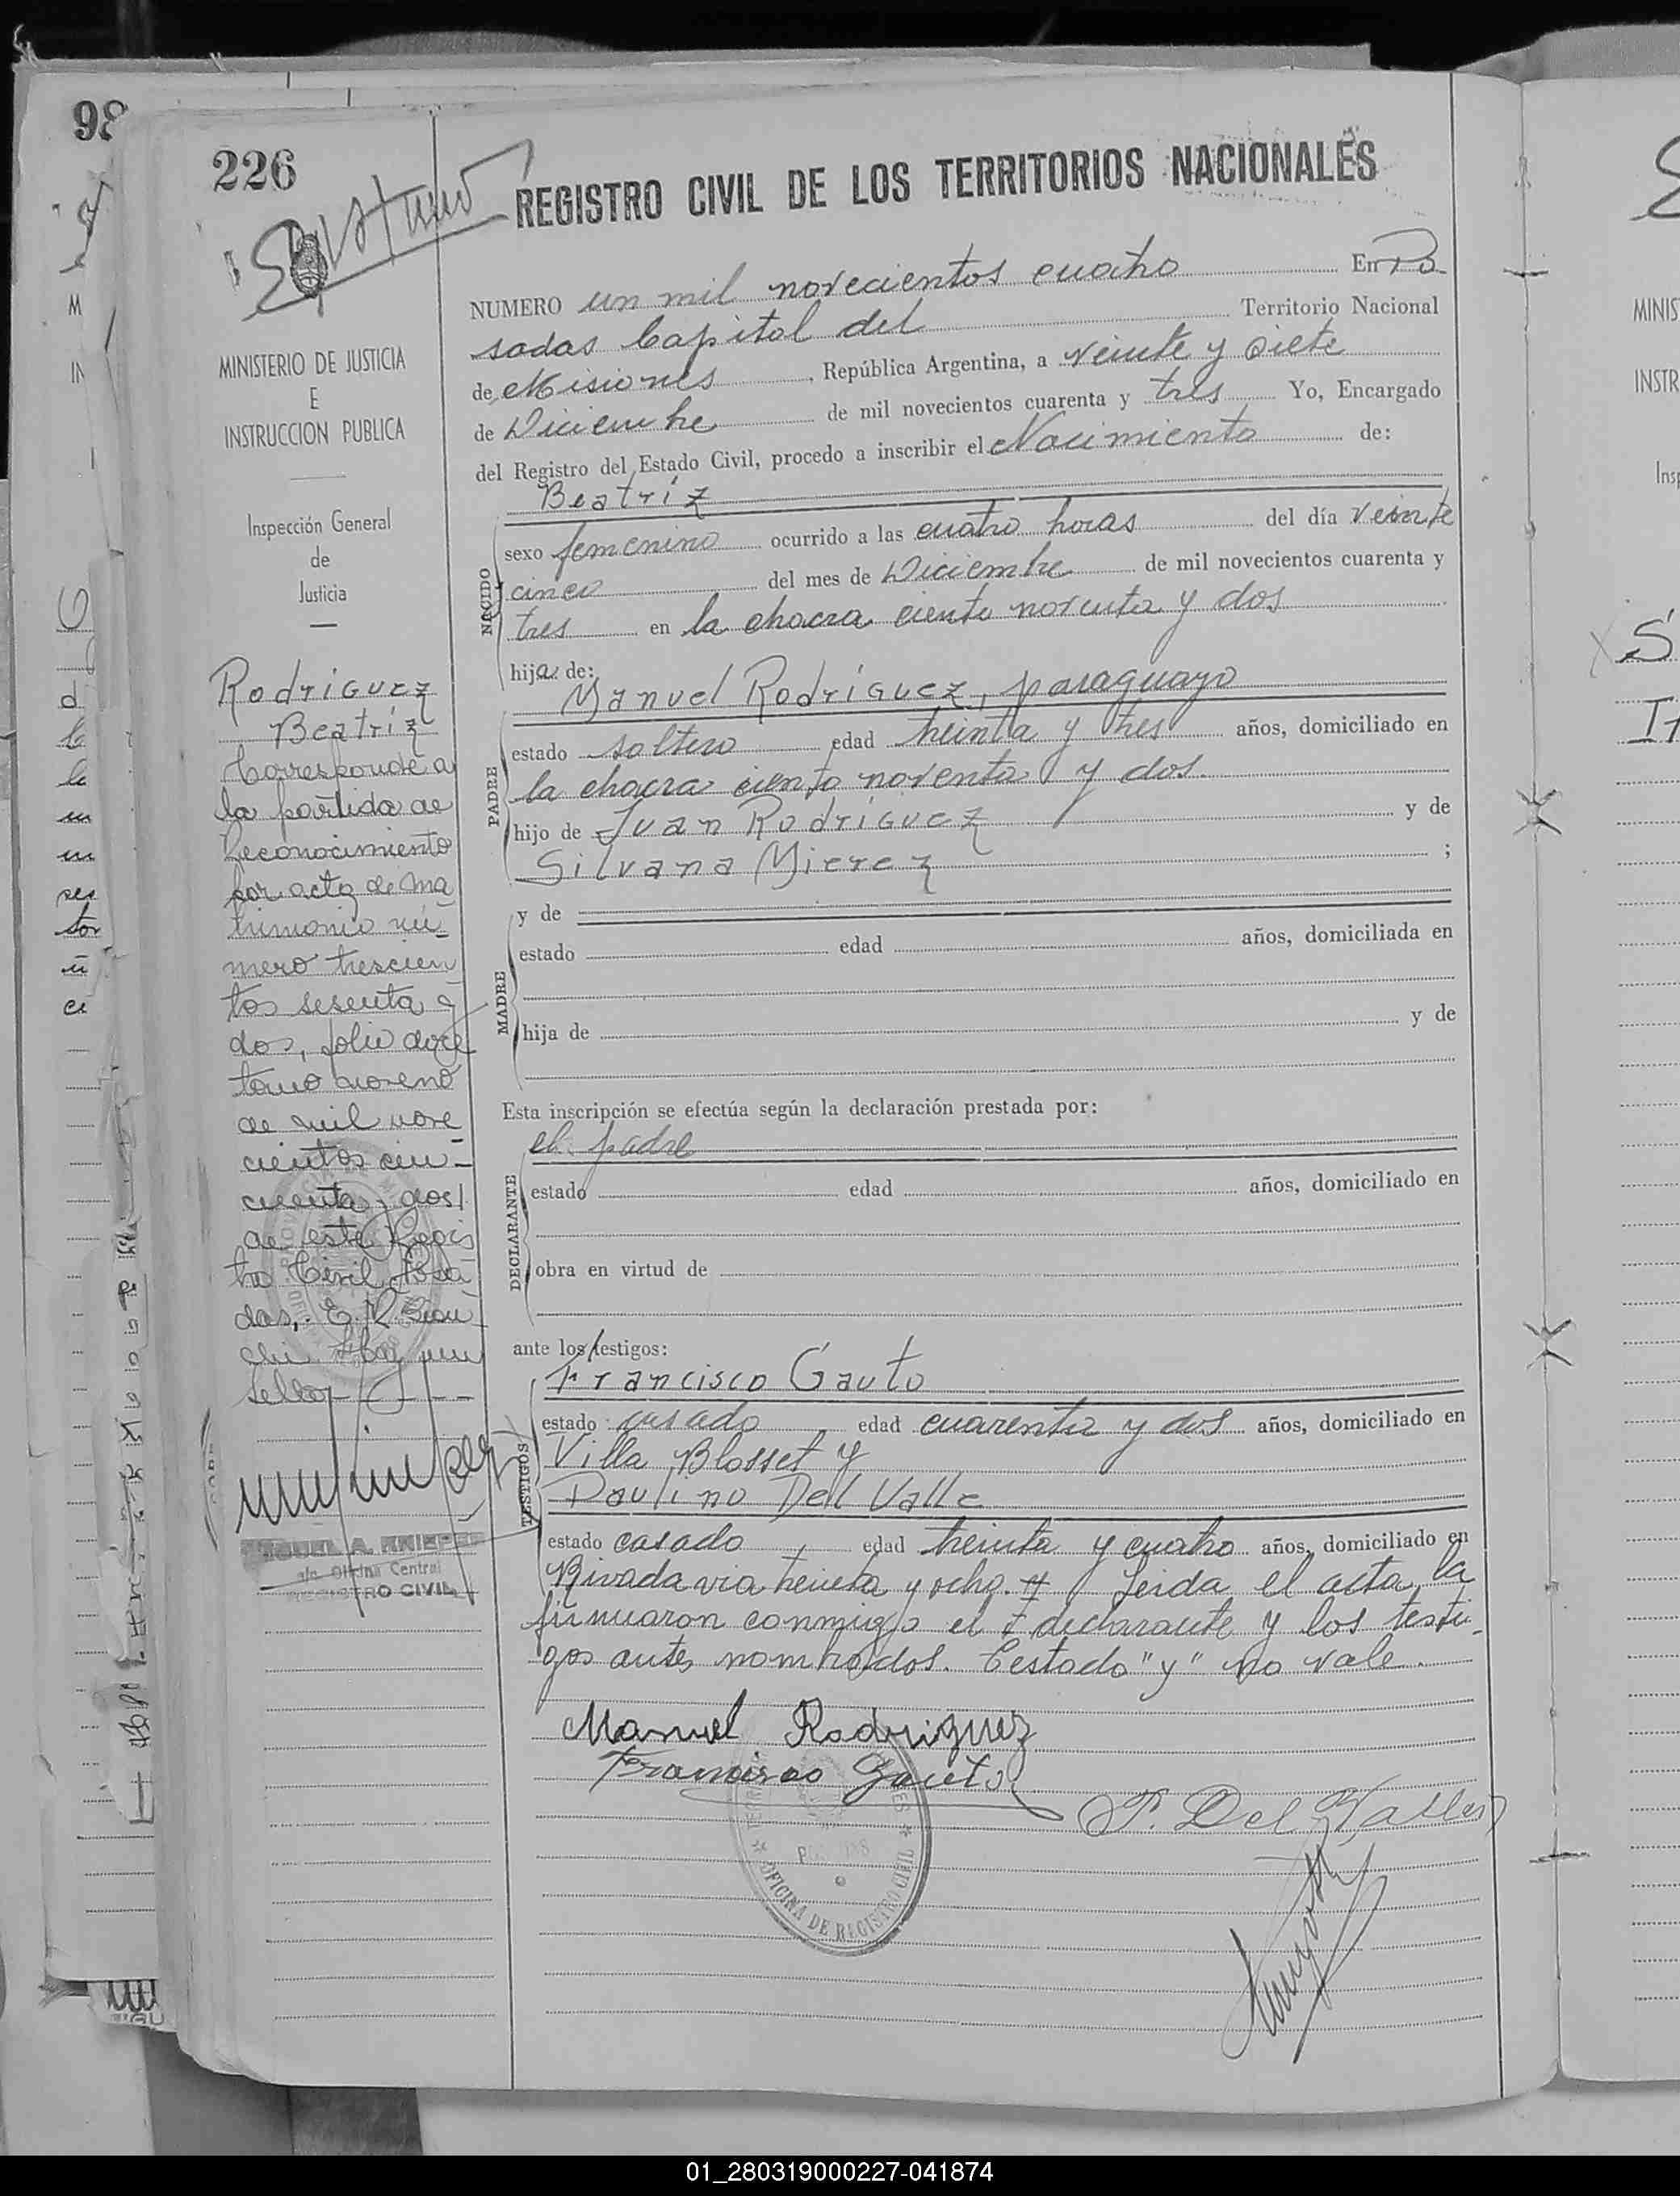 98
226
REGISTRO CIVIL DE LOS TERRITORIOS NACIONALES
NUMERO un mil novecientos cuatro En Po
sadas Capital del Territorio Nacional
de Misiones, República Argentina, a veinte y siete
de Diciembre de mil novecientos cuarenta y tres Yo, Encargado
del Registro del Estado Civil, procedo a inscribir el Nacimiento de:
Beatriz
NACIDO
sexo femenino ocurrido a las cuatro horas del día veinte
cinco del mes de Diciembre de mil novecientos cuarenta y
tres en la chacra ciento noventa y dos
hija de:
Manuel Rodríguez, paraguayo
PADRE
estado soltero edad treinta y tres años, domiciliado en
la chacra ciento noventa y dos.
hijo de Juan Rodríguez y de
Silvana Mierez ;
y de
MADRE
estado edad años, domiciliada en
hija de y de
Esta inscripción se efectúa según la declaración prestada por:
el padre
DECLARANTE
estado edad años, domiciliado en
obra en virtud de
ante los testigos:
Francisco Gauto
TESTIGOS
estado casado edad cuarenta y dos años, domiciliado en
Villa Blosset y
Paulino Del Valle
estado casado edad treinta y cuatro años, domiciliado en
Rivadavia treinta y ocho. Leida el acta, la
firmaron conmigo el declarante y los testi-
gos antes nombrados. Testado "y" no vale.
Manuel Rodriguez
Francisco Gauto
P. Del Valle
OFICINA DE REGISTRO CIVIL
MINISTERIO DE JUSTICIA
E
INSTRUCCION PUBLICA
Inspección General
de
Justicia
Rodriguez
Beatriz
Corresponde a
la partida de
Reconocimiento
por acta de ma
trimonio nú-
mero trescien
tos sesenta y
dos, folio doce
tomo noveno
de mil nove
cientos cin-
cuenta y dos
de este Regis
tro Civil Posa
das,
sello
MIGUEL A. KNIEPER
a/c. Oficina Central
REGISTRO CIVIL
MINIS
INSTR
Insp
01_280319000227-041874